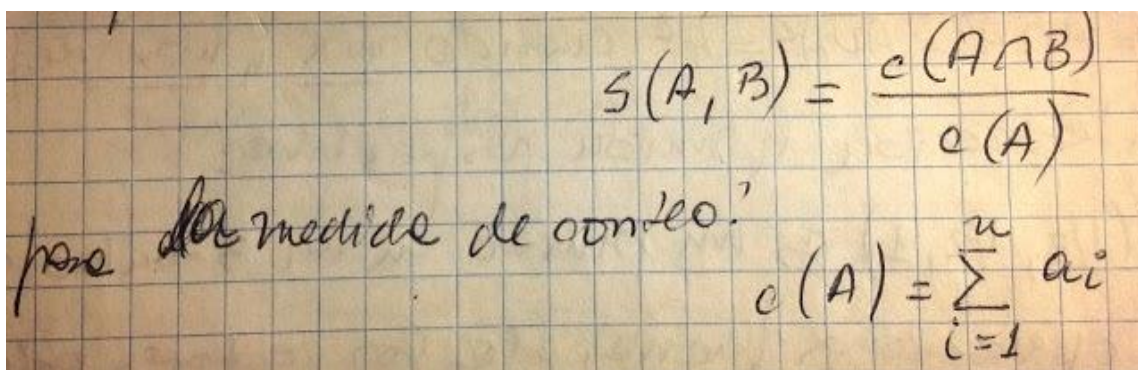 S(A, B) = c(A∩B) / c(A)
para la medida de conteo:
c(A) = ∑_{i=1}^{n} a_i